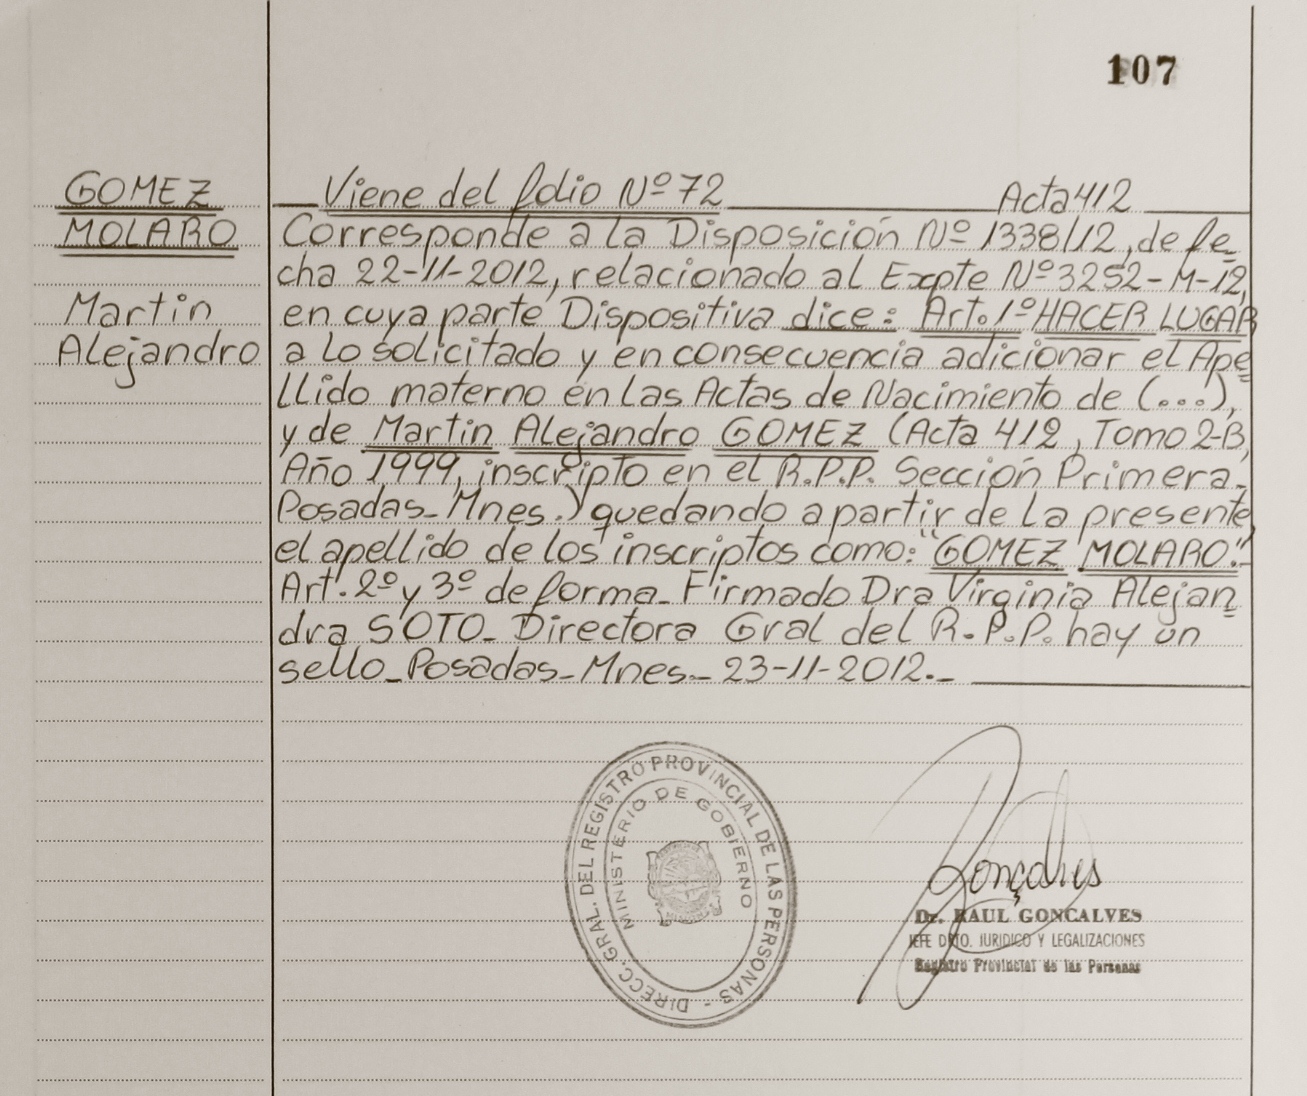 107
GOMEZ
MOLARO
Martin
Alejandro
Viene del folio Nº 72 Acta 412
Corresponde a la Disposición Nº 1338/12, de fe
cha 22-11-2012, relacionado al Expte Nº 3252-M-12,
en cuya parte Dispositiva dice: Art. 1º HACER LUGAR
a lo solicitado y en consecuencia adicionar el Ape
llido materno en las Actas de Nacimiento de (...),
y de Martin Alejandro GOMEZ (Acta 412, Tomo 2-B,
Año 1999, inscripto en el R.P.P. Sección Primera-
Posadas-Mnes.) quedando a partir de la presente
el apellido de los inscriptos como: "GOMEZ MOLARO."
Art. 2º y 3º de forma_ Firmado Dra Virginia Alejan
dra SOTO_ Directora Gral del R.P.P. hay un
sello_Posadas_Mnes._ 23-11-2012._
DIRECC. GRAL. DEL REGISTRO PROVINCIAL DE LAS PERSONAS -
MINISTERIO DE GOBIERNO
Gonçalves
Dr. RAUL GONCALVES
JEFE DPTO. JURIDICO Y LEGALIZACIONES
Registro Provincial de las Personas